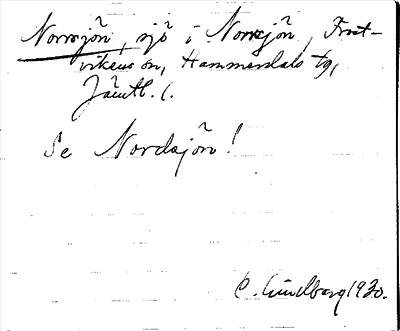 Norrsjön, sjö i Norrsjön, Frost-
vikens sn, Hammerdals tg,
Jämtl. l.
Se Nordsjön!
C. Lindberg 1930.